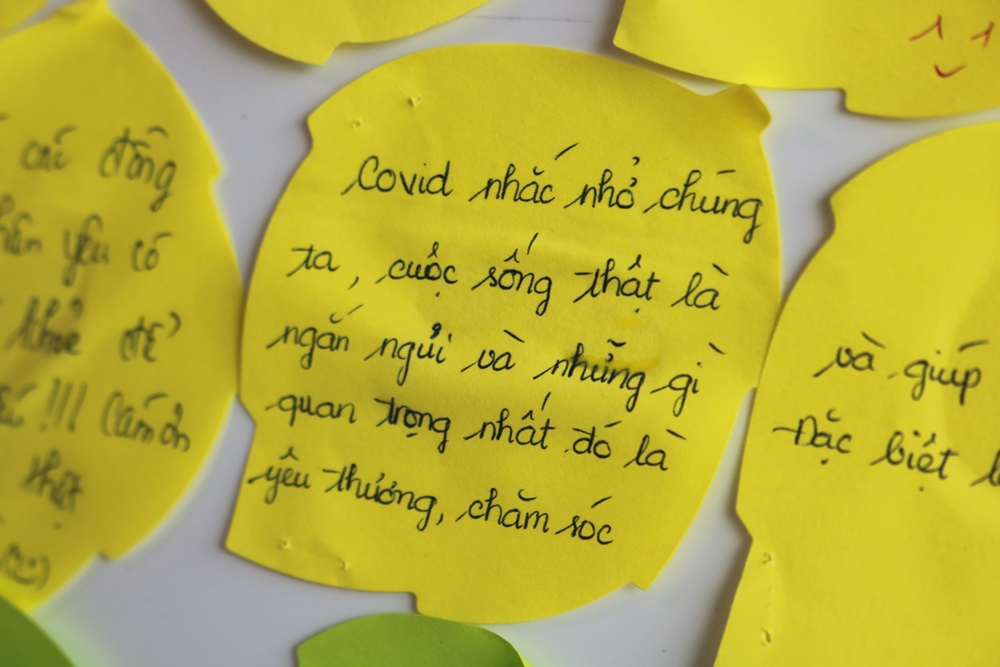 các đồng
yêu có
để
!!! Cảm ơn
thật
Covid nhắc nhở chúng
ta, cuộc sống thật là
ngắn ngủi và những gì
quan trọng nhất đó là
yêu thương, chăm sóc
và giúp
Đặc biệt